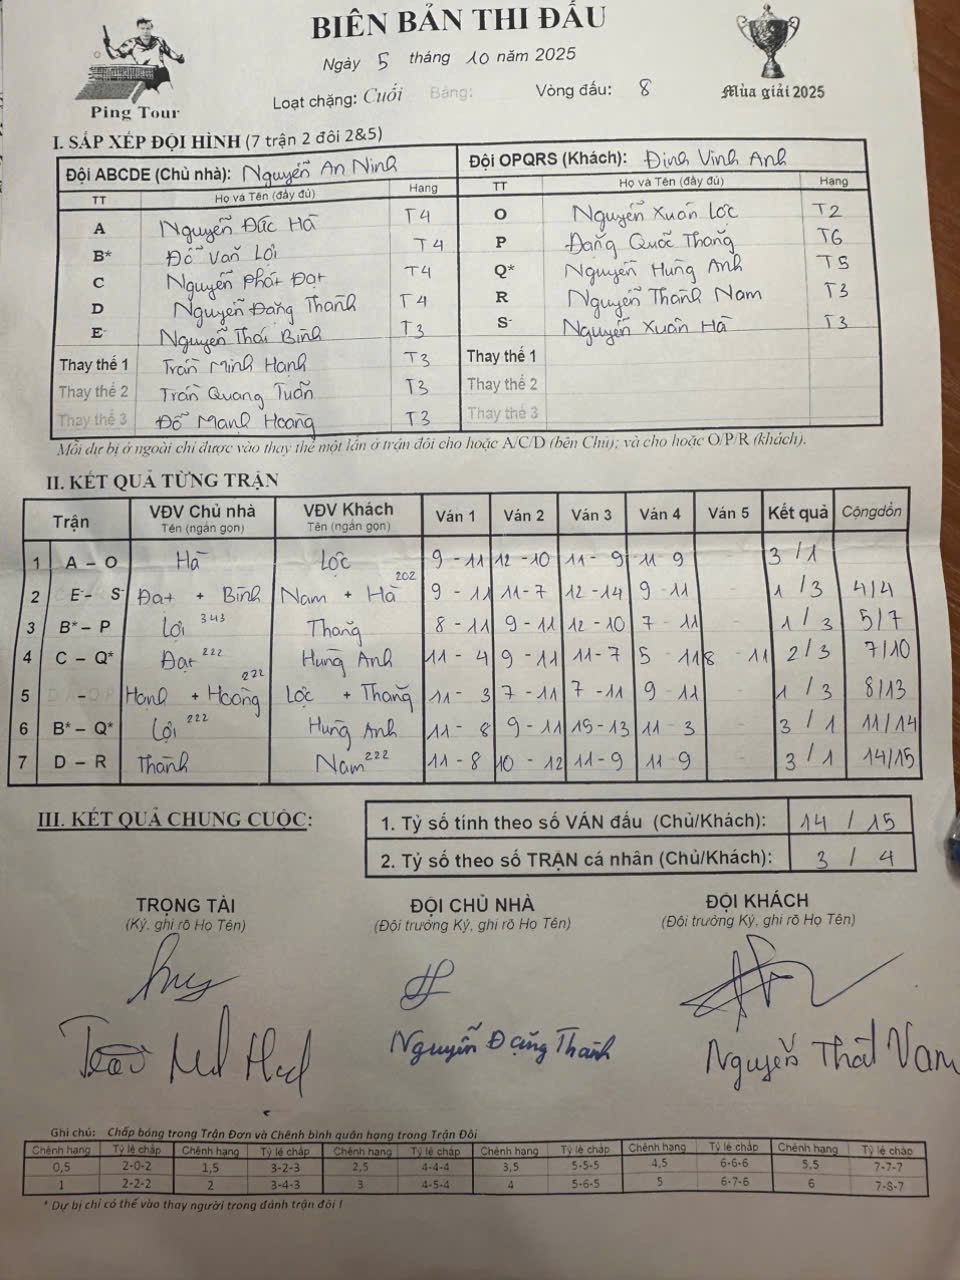 BIÊN BẢN THI ĐẤU
Ngày 5 tháng 10 năm 2025
Ping Tour
Loạt chặng: Cuối Bảng: Vòng đấu: 8
Mùa giải 2025
I. SẮP XẾP ĐỘI HÌNH (7 trận 2 đôi 2&5)
Đội ABCDE (Chủ nhà): Nguyễn An Ninh Đội OPQRS (Khách): Đinh Vinh Anh
TT Họ và Tên (đầy đủ) Hạng TT Họ và Tên (đầy đủ) Hạng
A Nguyễn Đức Hà T4 O Nguyễn Xuân Lộc T2
B* Đỗ Văn Lợi T4 P Đặng Quốc Thắng T6
C Nguyễn Phát Đạt T4 Q* Nguyễn Hùng Anh T5
D Nguyễn Đăng Thành T4 R Nguyễn Thành Nam T3
E- Nguyễn Thái Bình T3 S- Nguyễn Xuân Hà T3
Thay thế 1 Trần Minh Hạnh T3 Thay thế 1
Thay thế 2 Trần Quang Tuấn T3 Thay thế 2
Thay thế 3 Đỗ Mạnh Hoàng T3 Thay thế 3
Mỗi dự bị ở ngoài chỉ được vào thay thế một lần ở trận đôi cho hoặc A/C/D (bên Chủ); và cho hoặc O/P/R (khách).
II. KẾT QUẢ TỪNG TRẬN
Trận VĐV Chủ nhà Tên (ngắn gọn) VĐV Khách Tên (ngắn gọn) Ván 1 Ván 2 Ván 3 Ván 4 Ván 5 Kết quả Cộng dồn
1 A – O Hà Lộc 9 - 11 12 - 10 11 - 9 11 - 9 - 3 / 1
2 E- – S- Đạt + Bình Nam + Hà 202 9 - 11 11 - 7 12 - 14 9 - 11 - 1 / 3 4/4
3 B* – P Lợi 343 Thắng 8 - 11 9 - 11 12 - 10 7 - 11 - 1 / 3 5/7
4 C – Q* Đạt 222 Hùng Anh 11 - 4 9 - 11 11 - 7 5 - 11 8 - 11 2 / 3 7/10
5 – Hạnh + Hoàng 222 Lộc + Thắng 11 - 3 7 - 11 7 - 11 9 - 11 - 1 / 3 8/13
6 B* – Q* Lợi 222 Hùng Anh 11 - 8 9 - 11 15 - 13 11 - 3 - 3 / 1 11/14
7 D – R Thành Nam 222 11 - 8 10 - 12 11 - 9 11 - 9 - 3 / 1 14/15
III. KẾT QUẢ CHUNG CUỘC:
1. Tỷ số tính theo số VÁN đấu (Chủ/Khách): 14 / 15
2. Tỷ số theo số TRẬN cá nhân (Chủ/Khách): 3 / 4
TRỌNG TÀI ĐỘI CHỦ NHÀ ĐỘI KHÁCH
(Ký, ghi rõ Họ Tên) (Đội trưởng Ký, ghi rõ Họ Tên) (Đội trưởng Ký, ghi rõ Họ Tên)
Nguyễn Đặng Thành Nguyễn Thành Nam
Ghi chú: Chấp bóng trong Trận Đơn và Chênh bình quân hạng trong Trận Đôi
Chênh hạng Tỷ lệ chấp Chênh hạng Tỷ lệ chấp Chênh hạng Tỷ lệ chấp Chênh hạng Tỷ lệ chấp Chênh hạng Tỷ lệ chấp Chênh hạng Tỷ lệ chấp
0,5 2-0-2 1,5 3-2-3 2,5 4-4-4 3,5 5-5-5 4,5 6-6-6 5,5 7-7-7
1 2-2-2 2 3-4-3 3 4-5-4 4 5-6-5 5 6-7-6 6 7-8-7
* Dự bị chỉ có thể vào thay người trong đánh trận đôi !